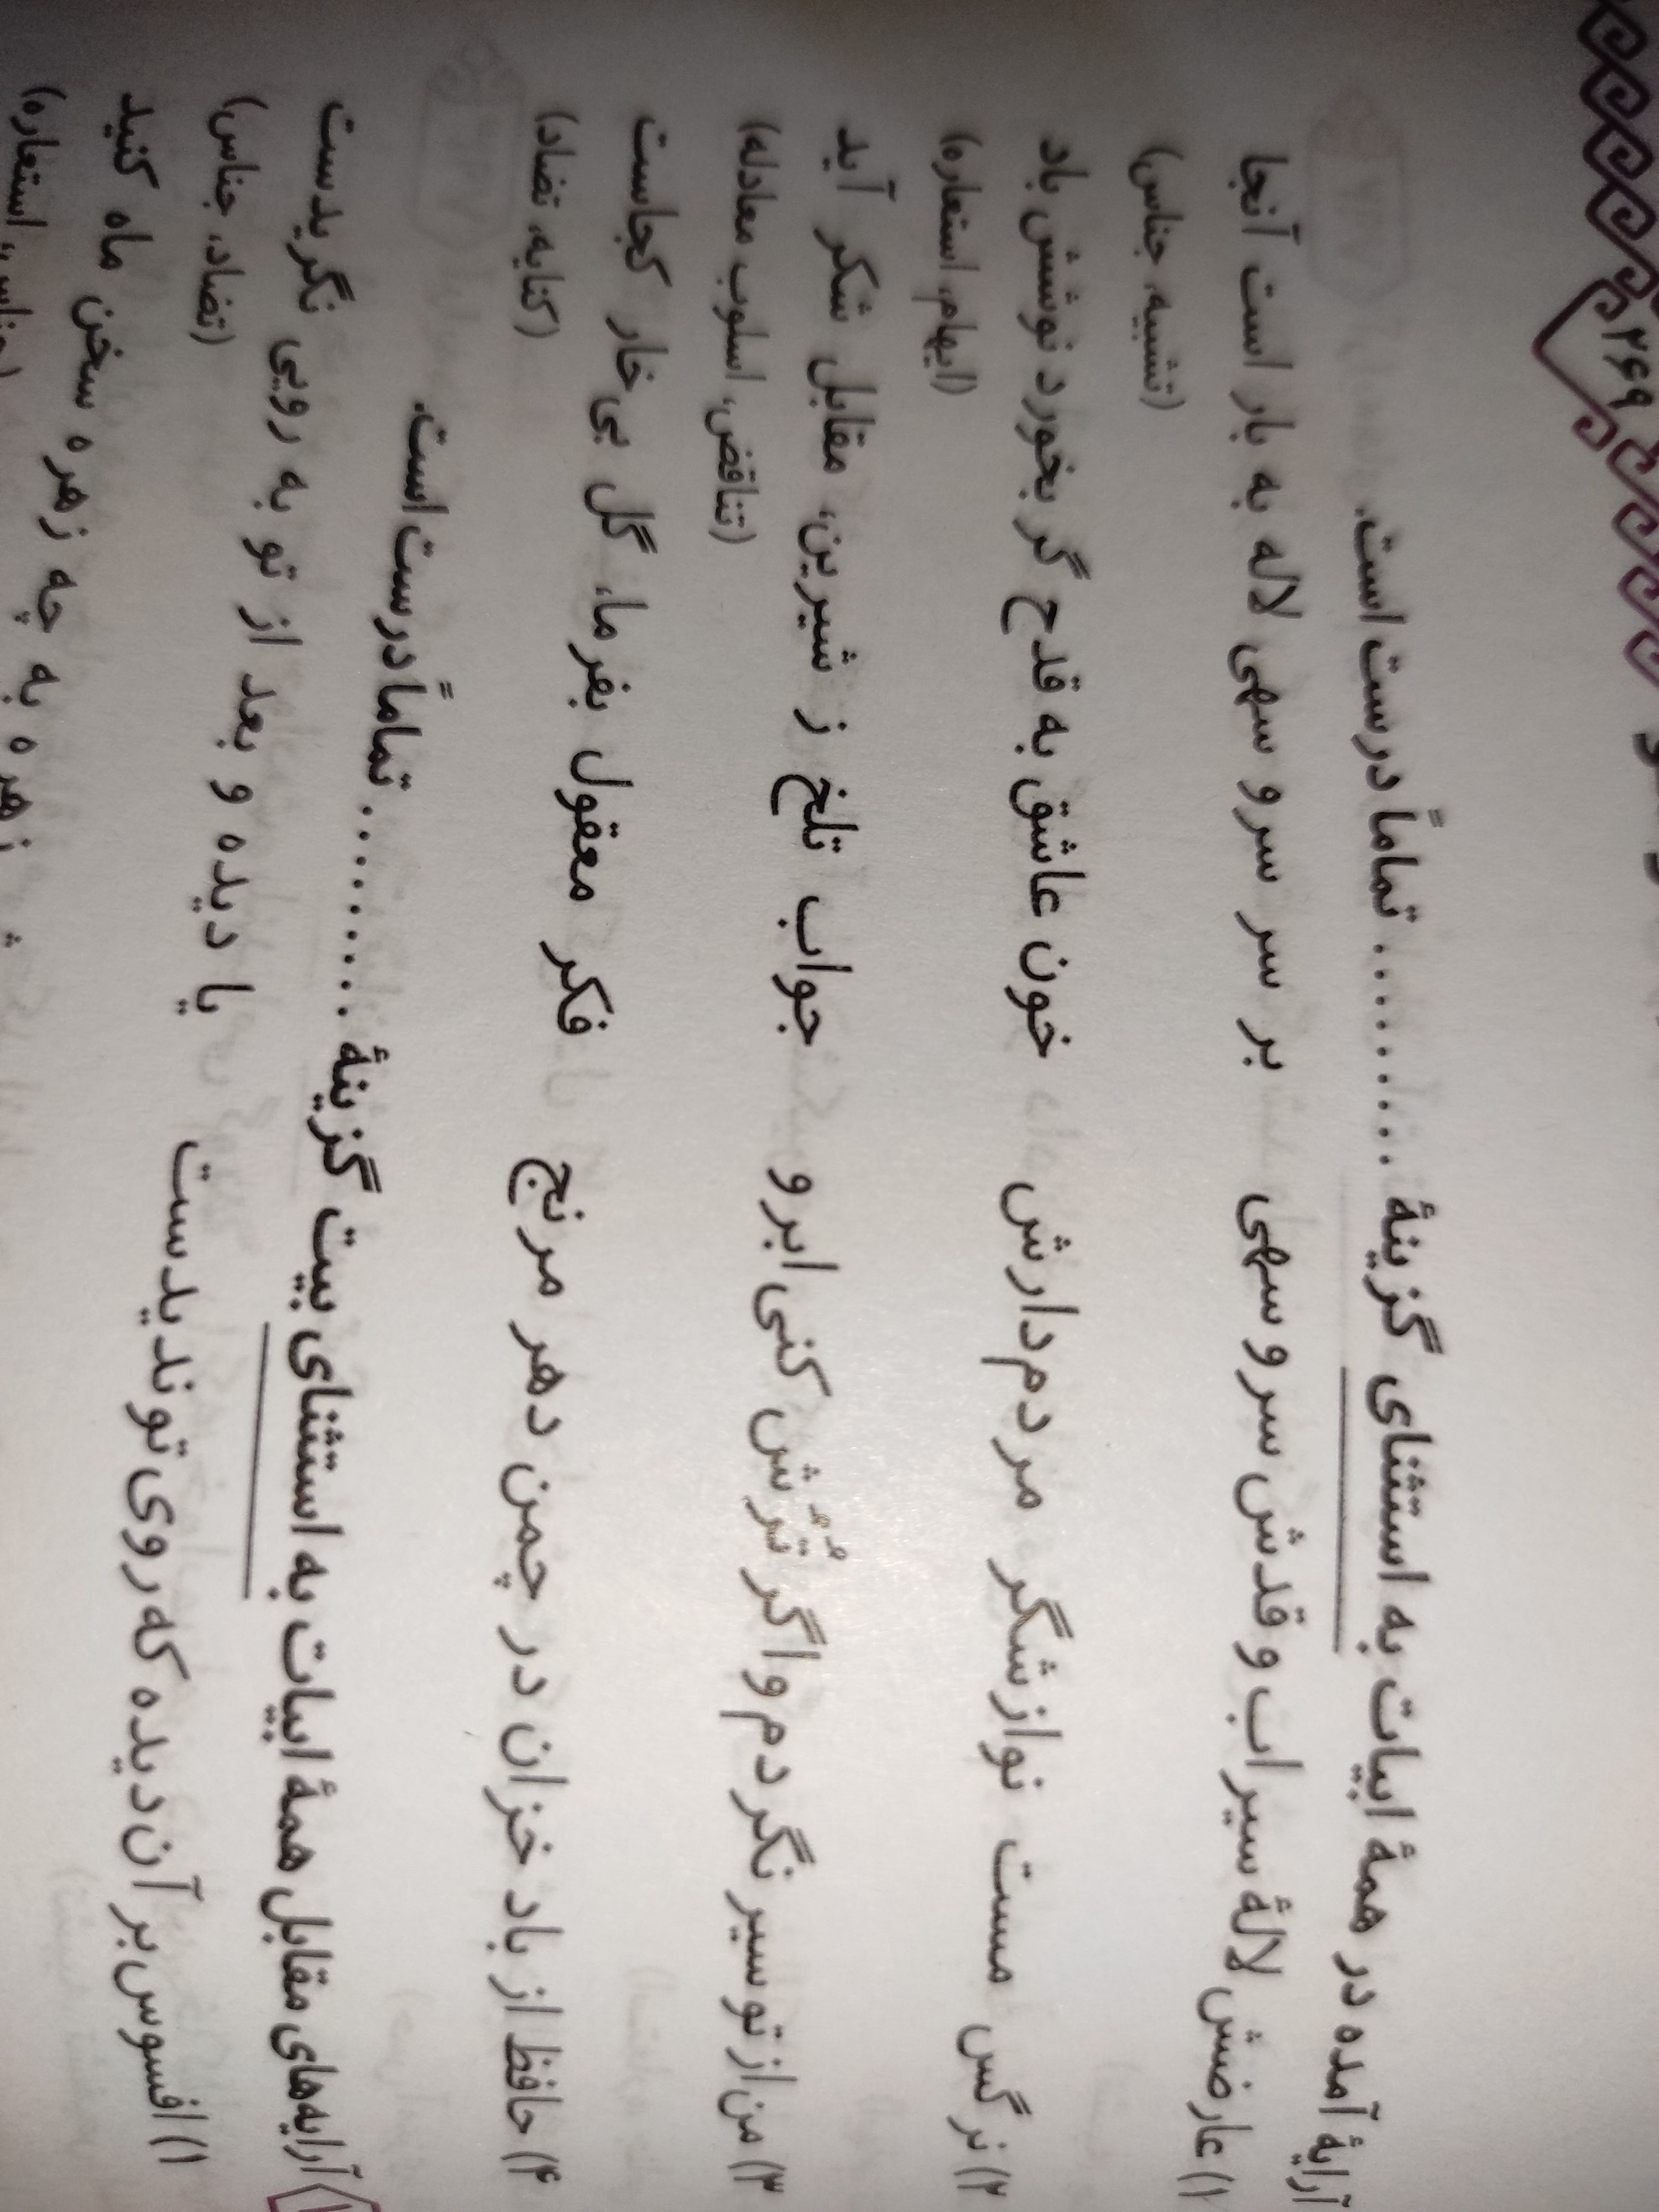 ۲۶۹
آرایهٔ آمده در همهٔ ابیات به استثنای گزینهٔ .......... تماماً درست است.
۱) عارضش لالهٔ سیراب و قدش سرو سهی بر سر سرو سهی لاله به بار است آنجا
(تشبیه، جناس)
۲) نرگس مست نوازشگر مردم‌دارش خون عاشق به قدح گر بخورد نوشش باد
(ایهام، استعاره)
۳) من از تو سیر نگردم و اگر تُرُش کنی ابرو جواب تلخ ز شیرین، مقابل شکر آید
(تناقض، اسلوب معادله)
۴) حافظ از باد خزان در چمن دهر مرنج فکر معقول بفرما، گل بی‌خار کجاست
(کنایه، تضاد)
آرایه‌های مقابل همهٔ ابیات به استثنای بیت گزینهٔ .......... تماماً درست است.
۱) افسوس بر آن دیده که روی تو ندیدست یا دیده و بعد از تو به رویی نگریدست
(تضاد، جناس)
زهره به چه زهره سخن ماه کنید
استعاره)